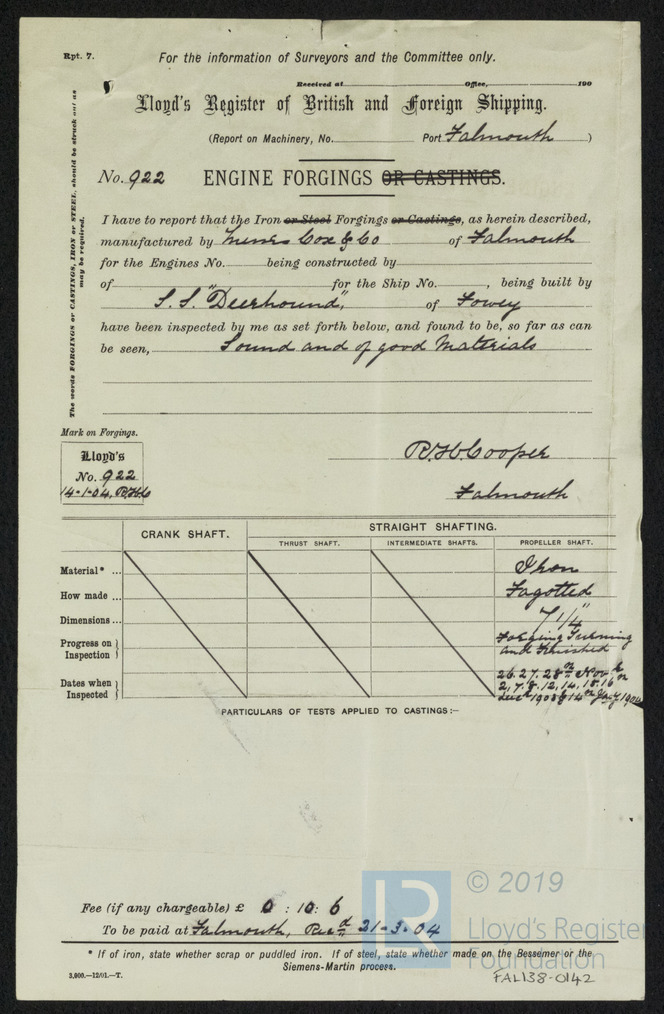 Rpt. 7.
For the information of Surveyors and the Committee only.
Received at Office, 190
Lloyd's Register of British and Foreign Shipping.
(Report on Machinery, No. Port Falmouth )
No. 922 ENGINE FORGINGS OR CASTINGS.
The words FORGINGS or CASTINGS, IRON or STEEL, should be struck out as
may be required.
I have to report that the Iron or Steel Forgings or Castings, as herein described,
manufactured by Messrs Cox & Co of Falmouth
for the Engines No. being constructed by
of for the Ship No. , being built by
S.S. "Deerhound", of Fowey
have been inspected by me as set forth below, and found to be, so far as can
be seen, Sound and of good Materials
Mark on Forgings.
Lloyd's
No. 922
14-1-04. RHC
R.H. Cooper
Falmouth
CRANK SHAFT. STRAIGHT SHAFTING.
THRUST SHAFT. INTERMEDIATE SHAFTS. PROPELLER SHAFT.
Material* ... Iron
How made ... Fagotted
Dimensions ... 7 1/4"
Progress on Inspection } Forging Turning and Finished
Dates when Inspected } ... 26. 27. 28th Nov
2, 7, 8, 12, 14, 15. 16
Decr 1903 & 14th Jany 1904
PARTICULARS OF TESTS APPLIED TO CASTINGS:—
Fee (if any chargeable) £ 0 : 10 : 6
To be paid at Falmouth, Recd 21-3-04
* If of iron, state whether scrap or puddled iron. If of steel, state whether made on the Bessemer or the
Siemens-Martin process.
3,000.—12/01.—T.
FAL138-0142
LR
© 2019
Lloyd's Register
Foundation